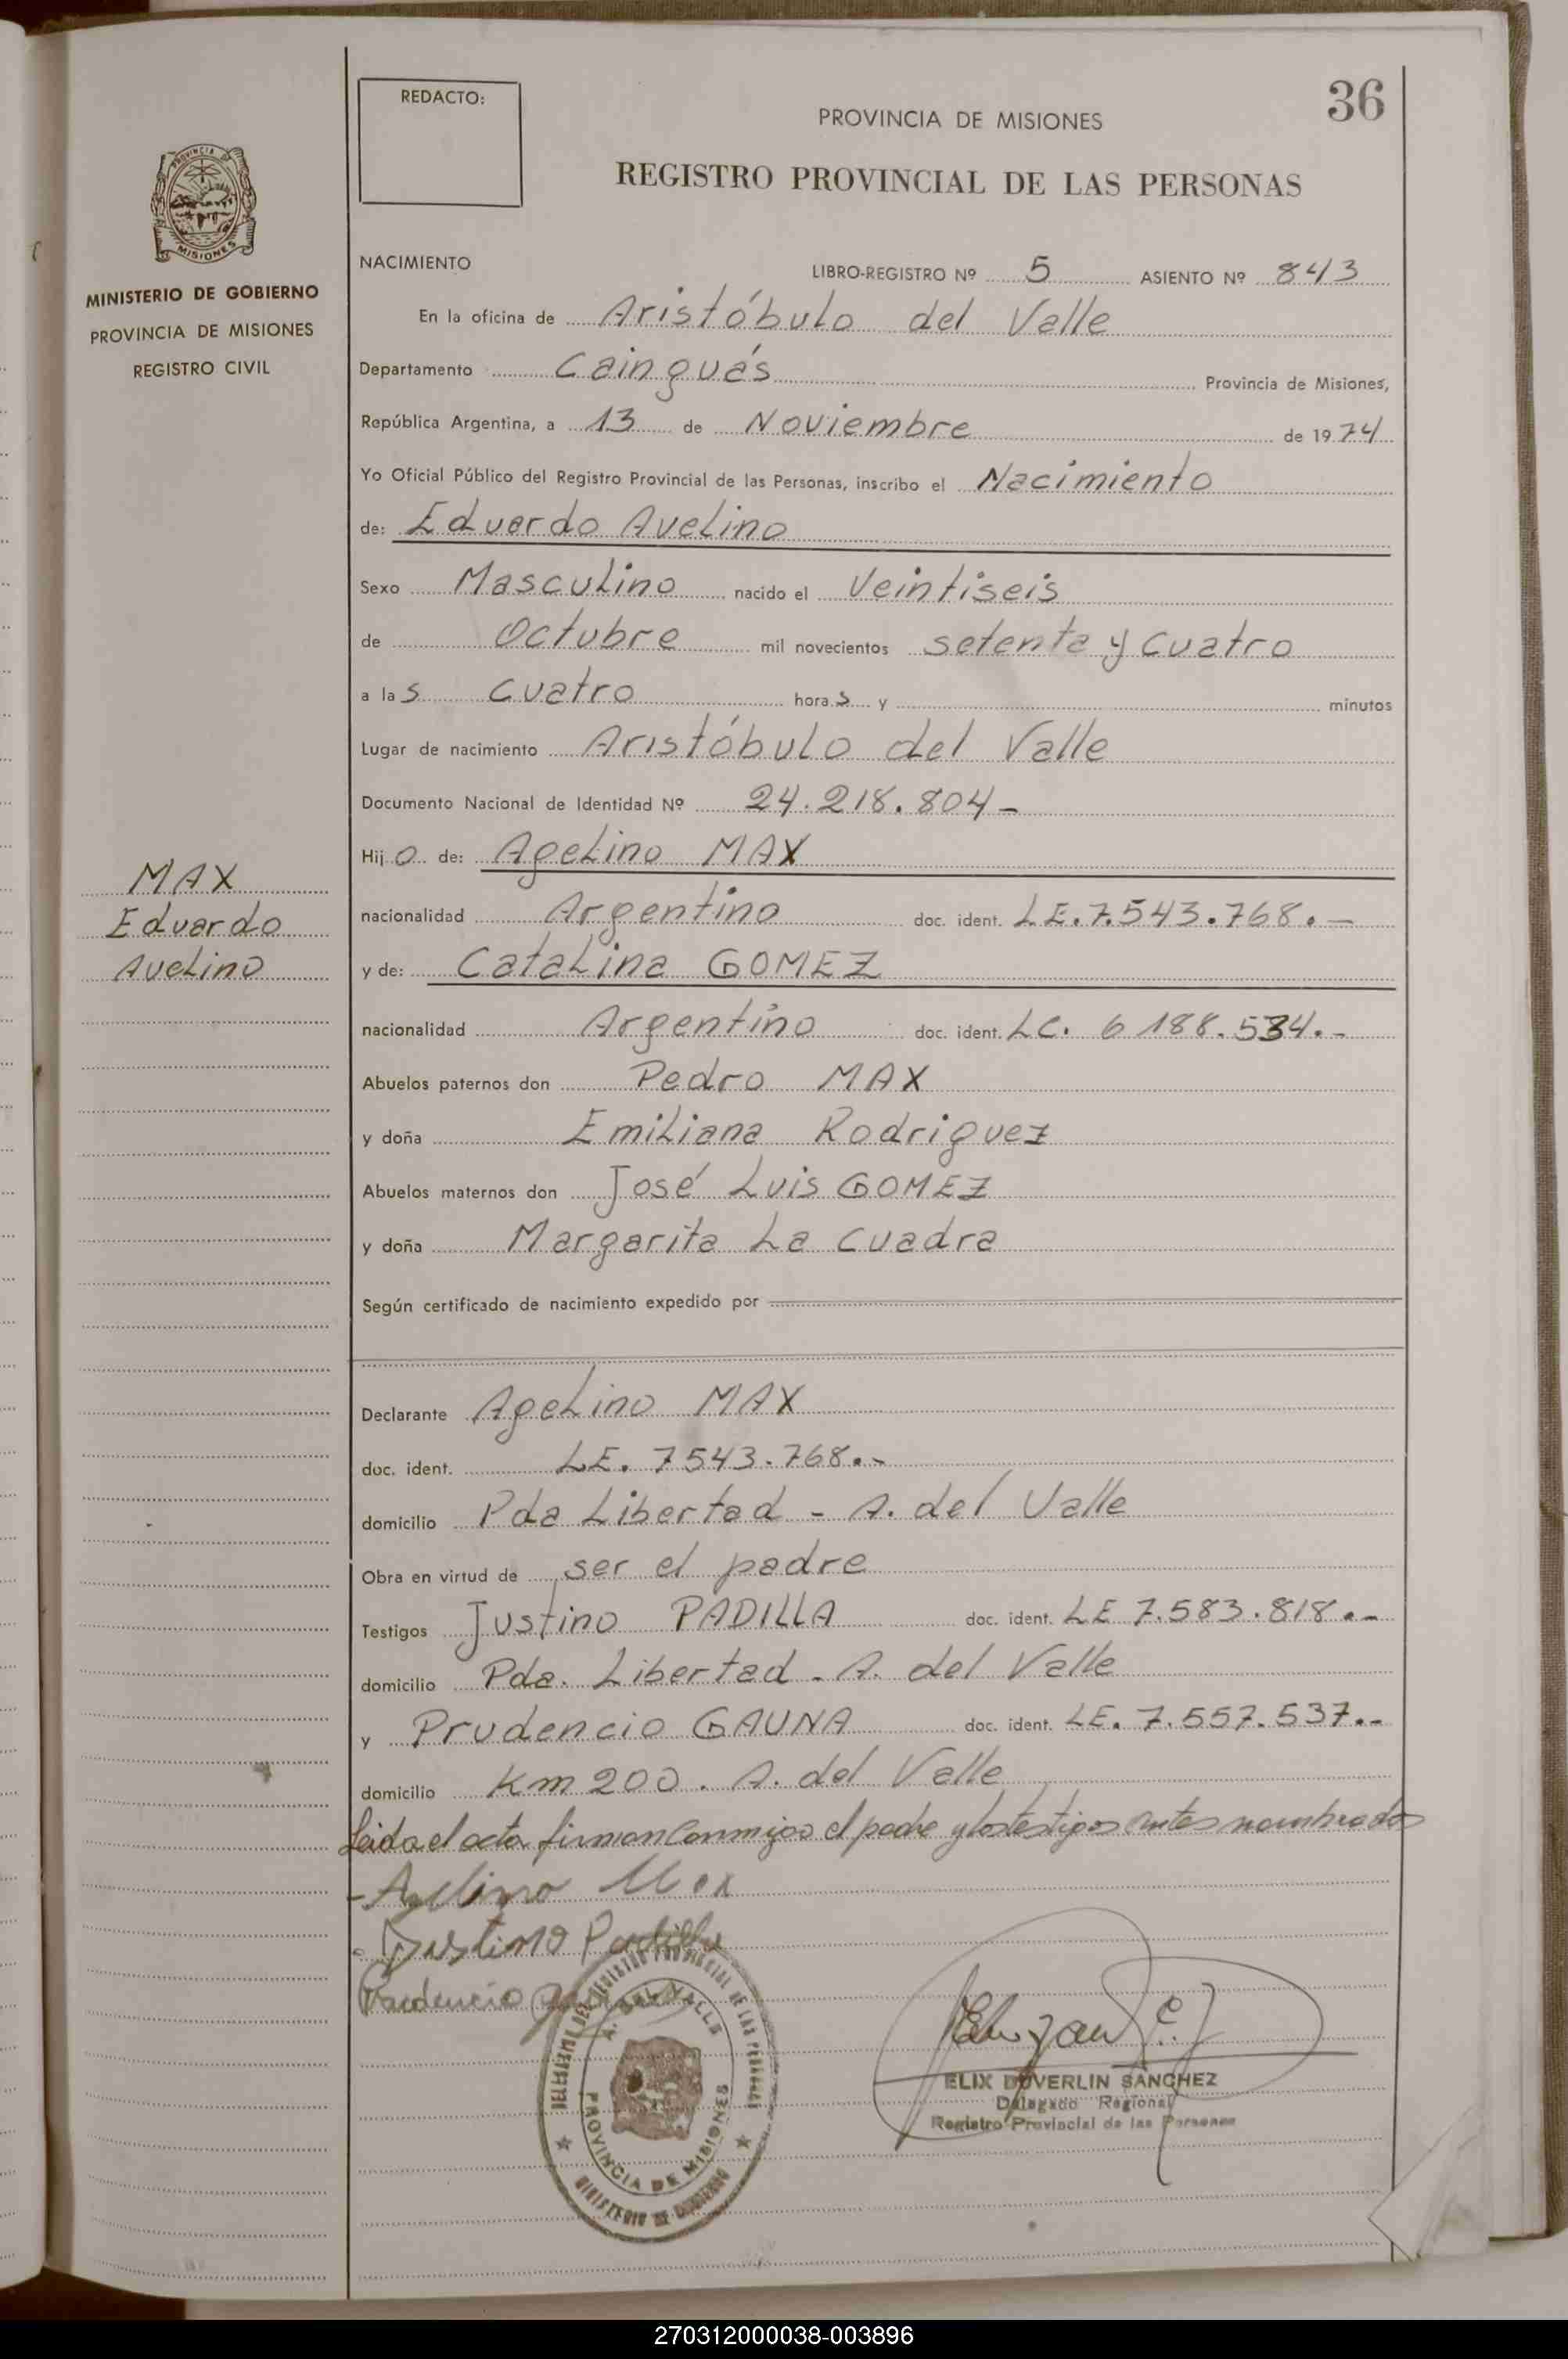 36
REDACTO:
PROVINCIA DE MISIONES
REGISTRO PROVINCIAL DE LAS PERSONAS
PROVINCIA DE
MISIONES
MINISTERIO DE GOBIERNO
PROVINCIA DE MISIONES
REGISTRO CIVIL
NACIMIENTO
LIBRO-REGISTRO Nº 5 ASIENTO Nº 843
En la oficina de Aristóbulo del Valle
Departamento Cainguás Provincia de Misiones,
República Argentina, a 13 de Noviembre de 1974
Yo Oficial Público del Registro Provincial de las Personas, inscribo el Nacimiento
de: Eduardo Avelino
Sexo Masculino nacido el Veintiseis
de Octubre mil novecientos setenta y cuatro
a las cuatro horas y minutos
Lugar de nacimiento Aristóbulo del Valle
Documento Nacional de Identidad Nº 24.218.804-
Hijo de: Agelino MAX
MAX
Eduardo
Avelino
nacionalidad Argentino doc. ident. LE.7.543.768.-
y de: Catalina GOMEZ
nacionalidad Argentino doc. ident. LC. 6 188.534.-
Abuelos paternos don Pedro MAX
y doña Emiliana Rodriguez
Abuelos maternos don José Luis GOMEZ
y doña Margarita La Cuadra
Según certificado de nacimiento expedido por
Declarante Agelino MAX
doc. ident. LE. 7543.768.-
domicilio Pda Libertad - A. del Valle
Obra en virtud de ser el padre
Testigos Justino PADILLA doc. ident. LE 7.583.818.-
domicilio Pda. Libertad - A. del Valle
y Prudencio GAUNA doc. ident. LE. 7.557.537.-
domicilio Km 200. A. del Valle
Leida el acta firman conmigo el padre y los testigos antes nombrados
-Agelino Max
Justino Padilla
Prudencio
REGISTRO PROVINCIAL DE LAS PERSONAS
A. DEL VALLE
PROVINCIA DE MISIONES
MINISTERIO DE GOBIERNO
ELIX DUVERLIN SANCHEZ
Delegado Regional
Registro Provincial de las Personas
270312000038-003896